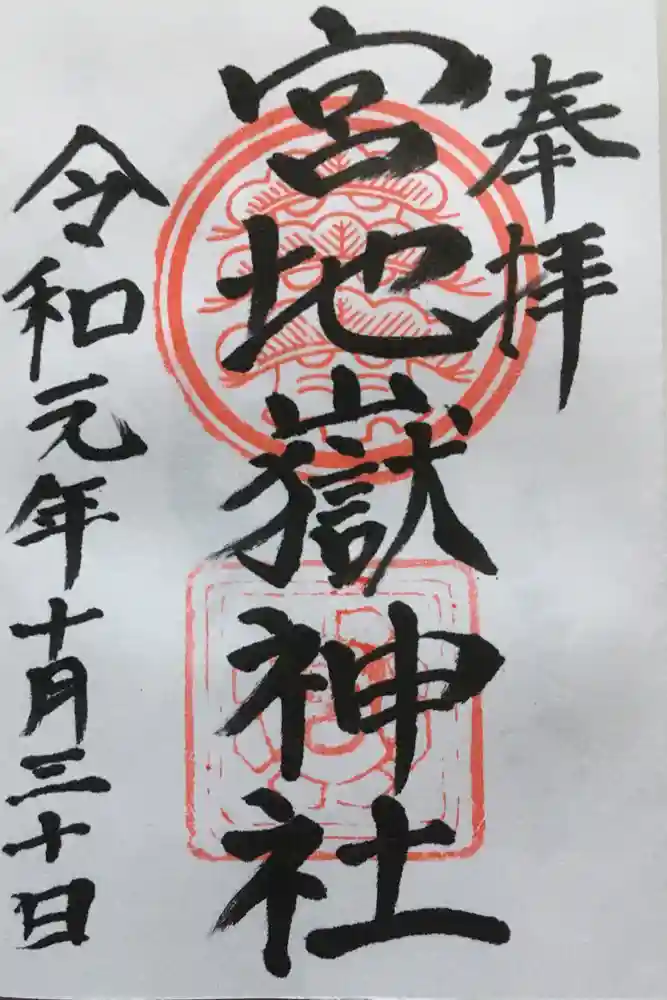 奉拝
宮地嶽神社
令和元年十月三十日